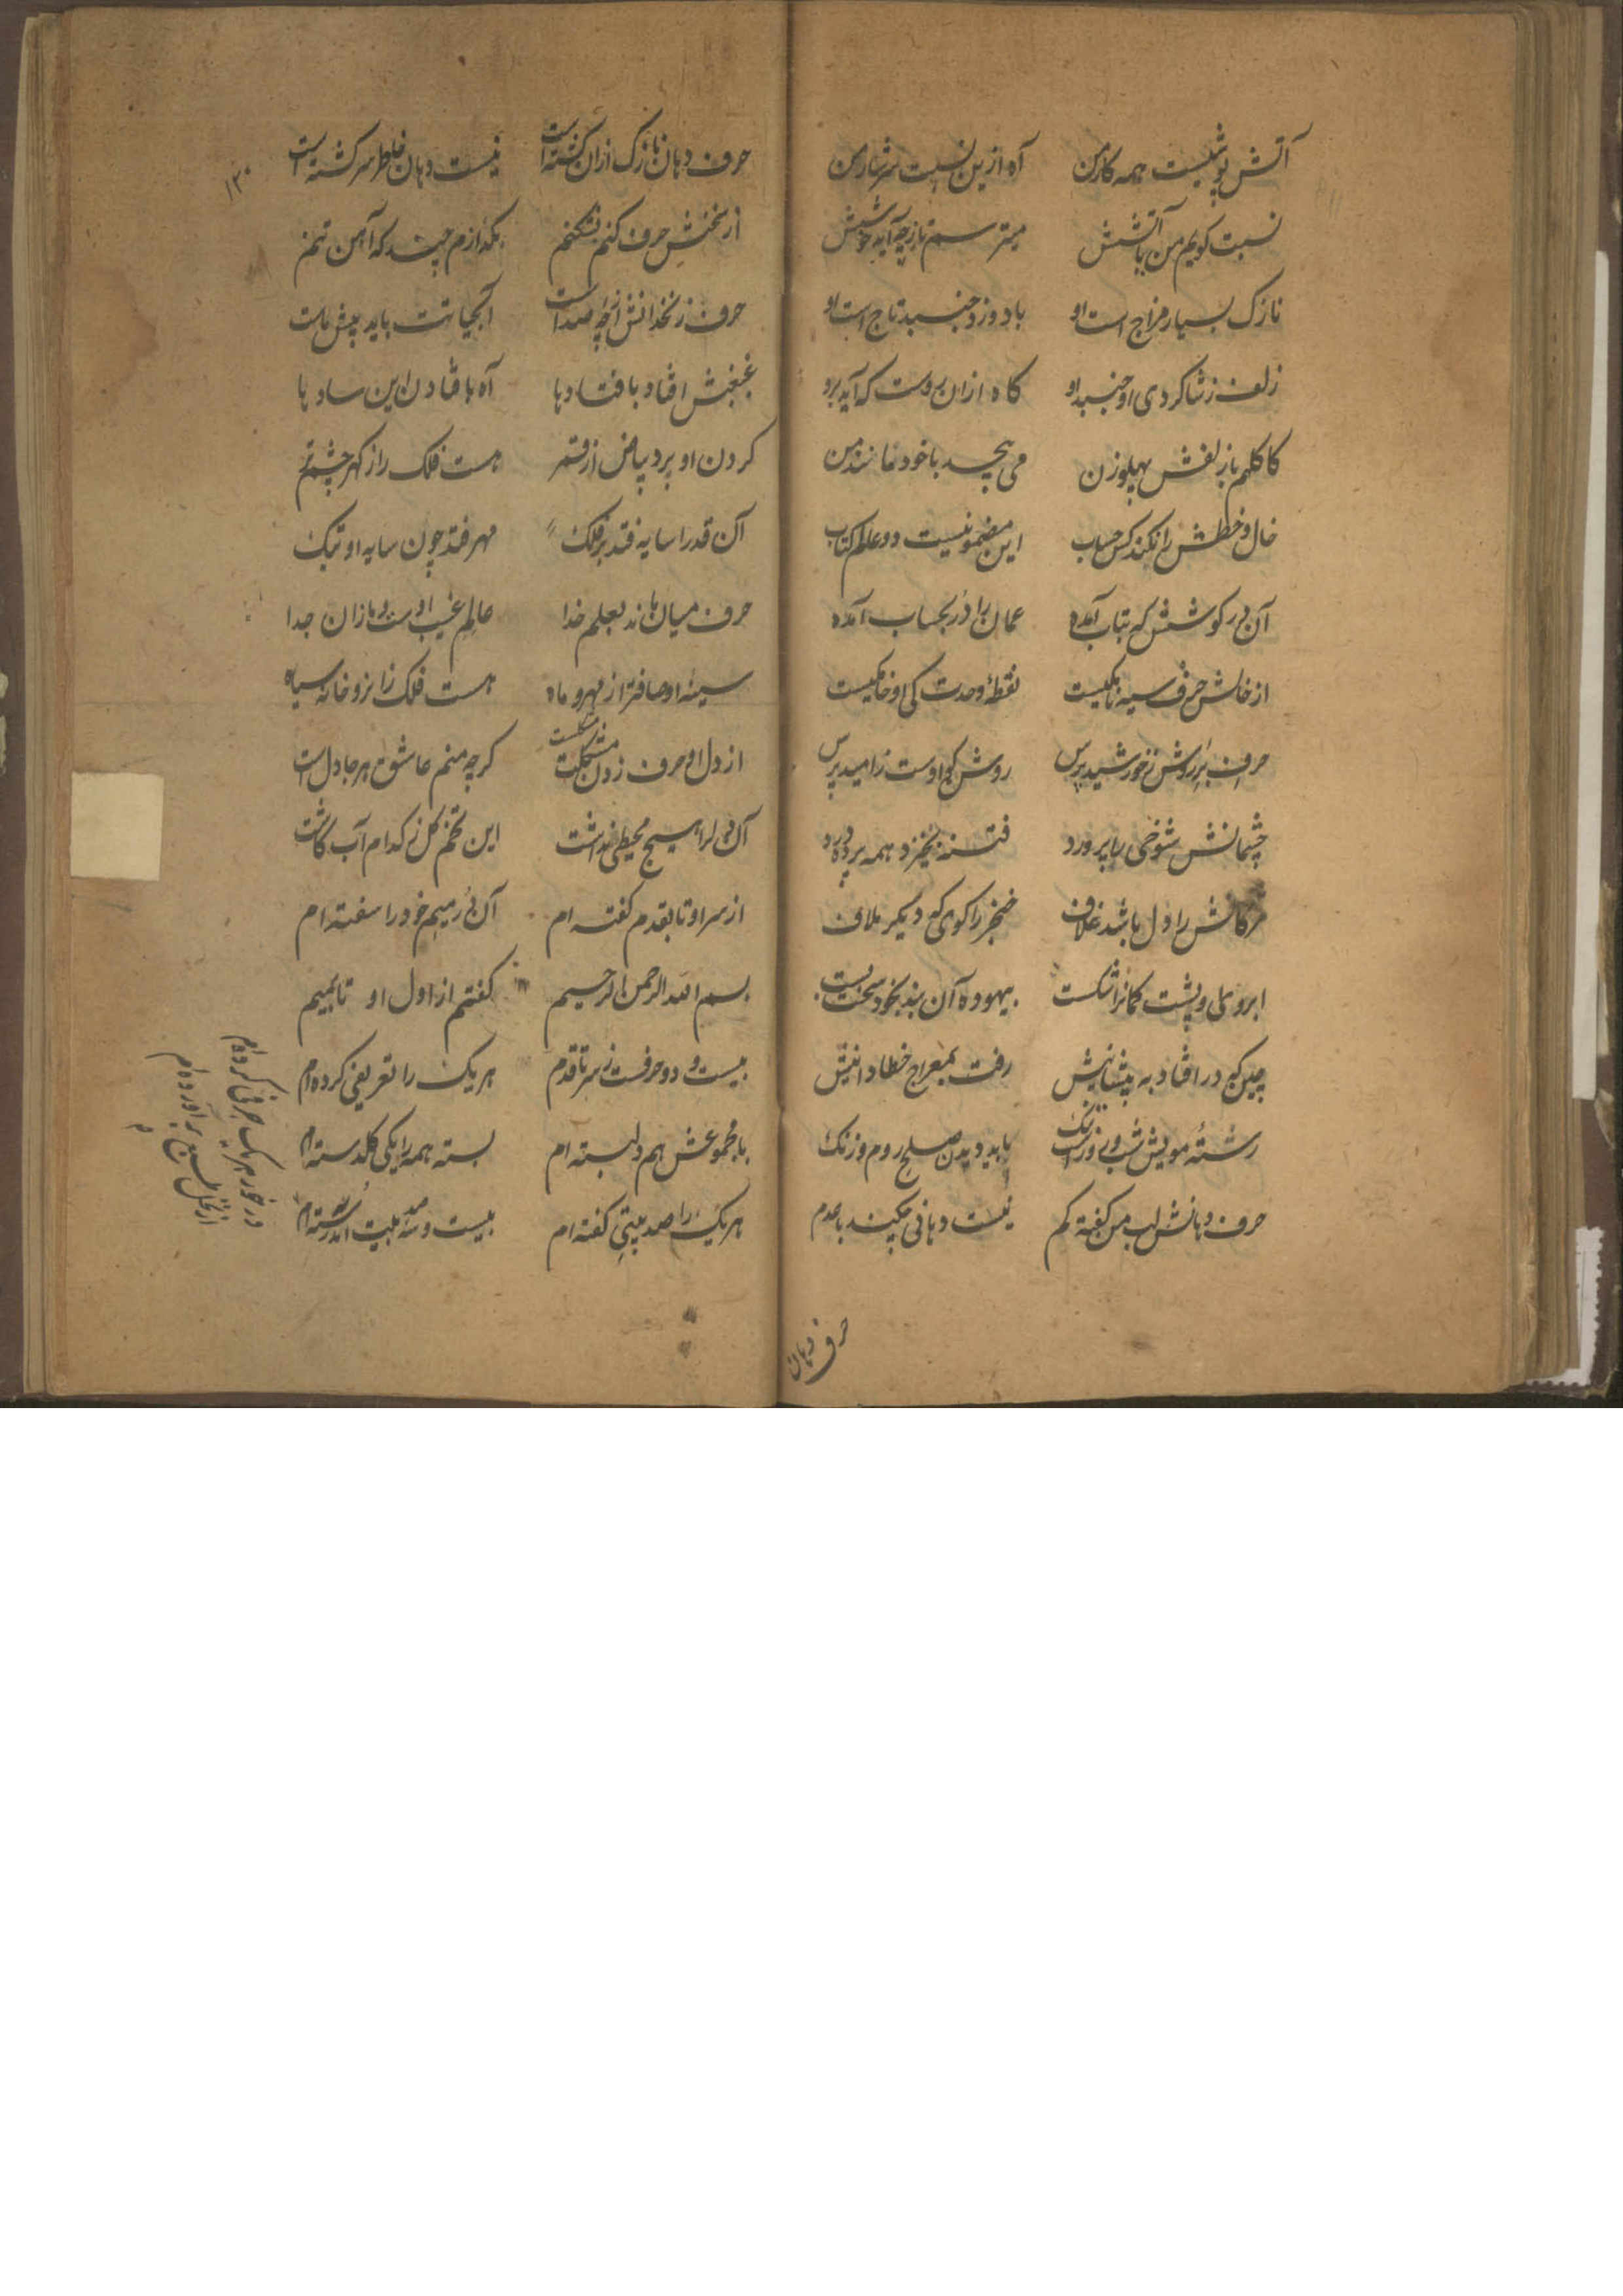 آتش پوشیست همه کار من آه ازین نسبت سرشار من
نسبت کویم من با آتشش میترسم تا زچه آید خوشش
نازک بسیار مزاج است او باد وزد جنبد تاج است او
زلف زشاکردی او جنبد او کاه ازان روست که آید برو
کاکلهم باز لفش پهلوزن می پیچد باخود مانند من
خال و خطش را نکند کس حساب این مضمون نیست دو عالم کتاب
آن در کوشش که بتاب آمده عمان را در بحساب آمده
از خالش حرف سیه نامکیست نقطهٔ وحدت کی او خامکیست
حرف بر روش زخورشید پرس روشن کی اوست زامید پرس
چشمانش شوخی را پرورد فتنه نخیزد همه پرورده
مژکانش را دل باشد غلاف خنجر را کوی که دیکر ملاف
ابروی وپشت کمانرا شکست بیهوده آن بند بخود سخت بست
چین که در افتاد به پیشانیش رفت بمعراج خطا دانیش
رشتهٔ مویش شب و روز است باید دیدن صلح روم و زنک
حرف دهانش لب من کفته کم نیست دهانی چکند با عدم
حرف دهان
۱۳۰
حرف دهان نازک ازان کشته است نیست دهان غلط سر کشته است
از سخنش حرف کنم نشکنم بکدازم چند که آهن تنم
حرف زنخدانش از چه صداست آبحیاتت باید پیش ماست
غبغبش افتاد با فتادها آه با فتادن این سادها
کردن او برد بیاض از قمر هست فلک را زکهر چشم تر
آن قد را سایه فتد بر فلک مهر فتد چون سایه او تبک
حرف میان ماند بعلم خدا عالم غیب اوست و مازان جدا
سینه او صافتر از مهر و ماه هست فلک زا نرو خانه سیاه
از دل او حرف زدن مشکلست کرچه منم عاشق هر جا دل است
آن دل را هیچ محیطی نداشت این تخم کل زکدام آب کاشت
از سر او تا بقدم کفته ام آن در میم خود را سفته ام
بسم الله الرحمن الرحیم کفتم از اول او تا بمیم
بیست و دو حرفست زسر تا قدم هر یک را تعریفی کرده ام
با مجموعش هم دلبسته ام بسته همه را یکی کلدسته ام
هر یک را صد بیتی کفته ام بیست و سه صد بیت
در خور هر یک حرفی کرده ام
از نخل بر آورده ام